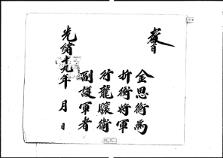 敎旨
金思 爲
折衝將軍
行龍驤衛
副護軍者
光緒十九年 月 日